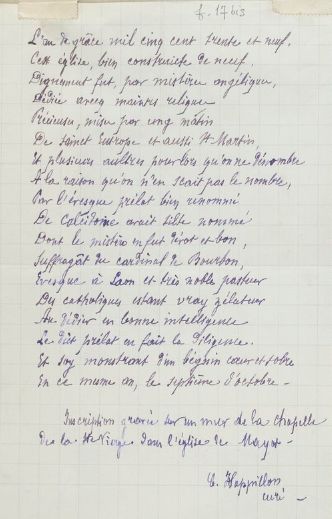 f. 17 bis
L'an de grâce mil cinq cent trente et neuf.
Cest église, bien construicte de neuf.
Dignement fut, par mistère angélique,
Dédié avecq maintes relique
Précieuse, mise par ung matin
De sainct Eutrope et aussi St Martin,
Et plusieurs aultres pour lors qu'on ne dénombre
A la raison qu'on n'en scait pas le nombre,
Par l'évesque prélat bien renommé
De Calcédoine avait tiltre nommé
Dont le mistère en fut dévot et bon,
Suffragāt du cardinal de Bourbon,
Evesque à Laon et très noble pasteur
Des catholiques estant vray zélateur
Au dédier en bonne intelligence
Le dit prélat en fait la diligence.
Et soy monstrant d'un bégnin cœur et sobre
En ce mesme an, le septième d'octobre –
Inscription gravée sur un mur de la chapelle
de la Ste Vierge dans l'église de Mayot –
curé